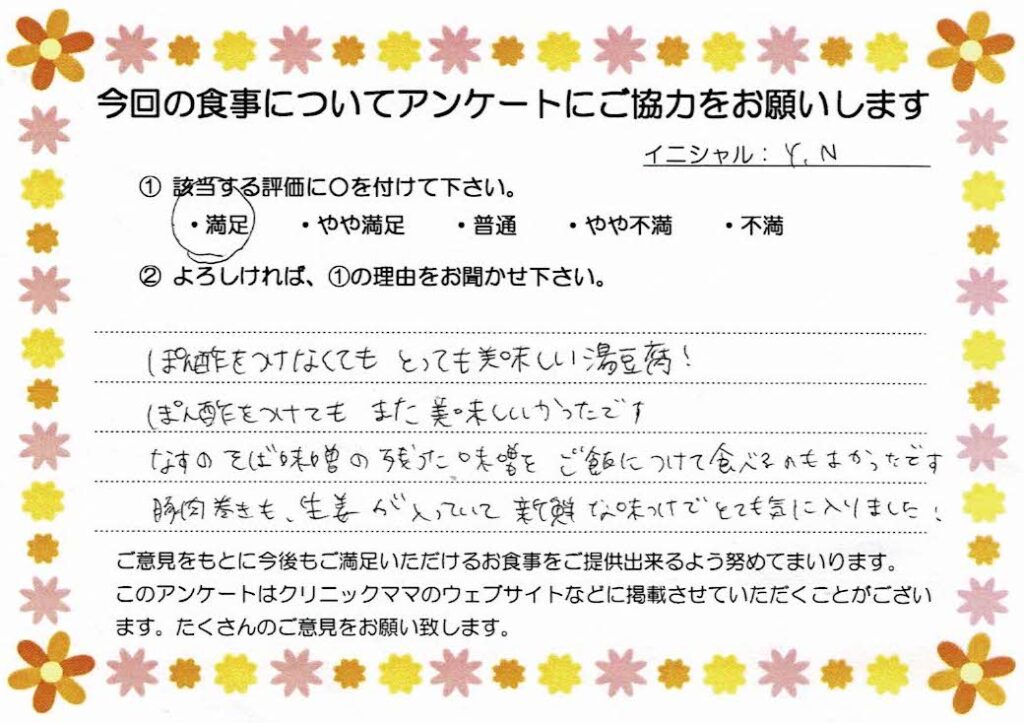 今回の食事についてアンケートにご協力をお願いします
イニシャル： Y. N
① 該当する評価に〇を付けて下さい。
・満足 ・やや満足 ・普通 ・やや不満 ・不満
② よろしければ、①の理由をお聞かせ下さい。
ぽん酢をつけなくても とっても美味しい湯豆腐！
ぽん酢をつけても また美味しいかったです
なすのそば味噌の残った味噌を ご飯につけて食べるのもよかったです
豚肉巻きも、生姜が入っていて 新鮮な味つけでとても気に入りました！
ご意見をもとに今後もご満足いただけるお食事をご提供出来るよう努めてまいります。
このアンケートはクリニックママのウェブサイトなどに掲載させていただくことがござい
ます。たくさんのご意見をお願い致します。